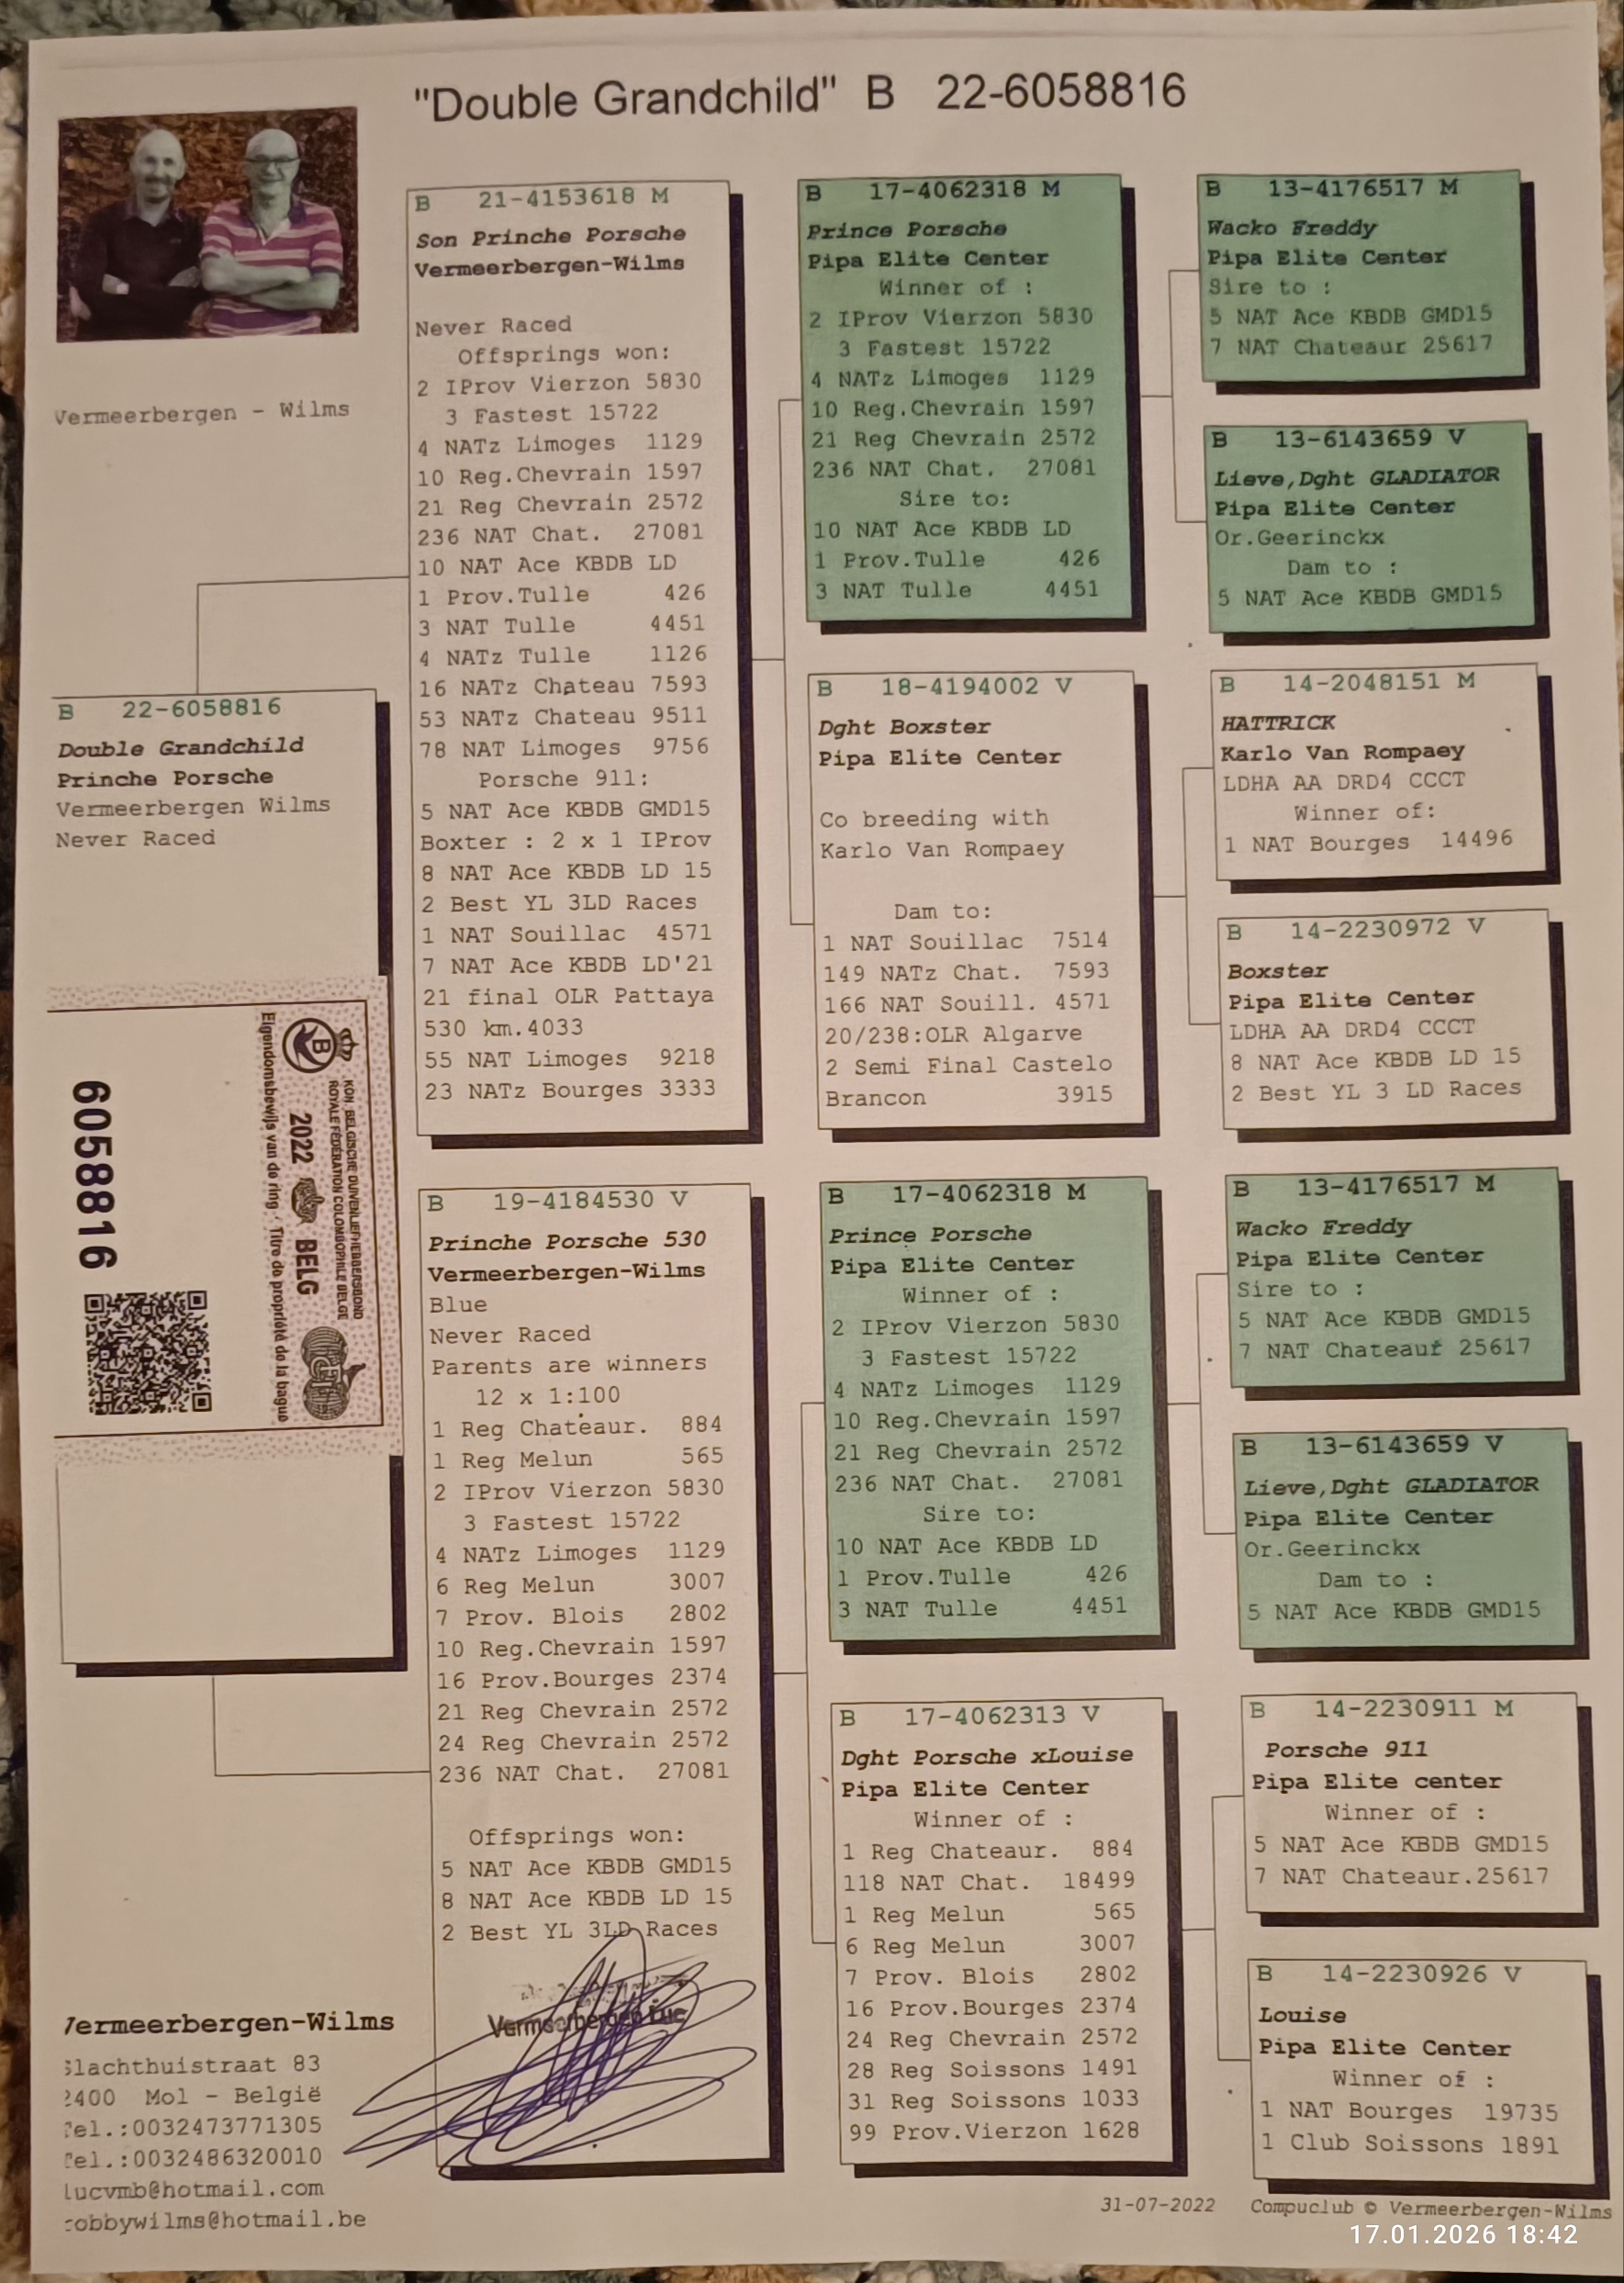 "Double Grandchild" B 22-6058816
Vermeerbergen - Wilms
B 22-6058816
Double Grandchild
Prinche Porsche
Vermeerbergen Wilms
Never Raced
6058816
KON. BELGISCHE DUIVENLIEFHEBBERSBOND
ROYALE FÉDÉRATION COLOMBOPHILE BELGE
B
2022 BELG
Eigendomsbewijs van de ring - Titre de propriété de la bague
B 21-4153618 M
Son Prinche Porsche
Vermeerbergen-Wilms
Never Raced
Offsprings won:
2 IProv Vierzon 5830
3 Fastest 15722
4 NATz Limoges 1129
10 Reg.Chevrain 1597
21 Reg Chevrain 2572
236 NAT Chat. 27081
10 NAT Ace KBDB LD
1 Prov.Tulle 426
3 NAT Tulle 4451
4 NATz Tulle 1126
16 NATz Chateau 7593
53 NATz Chateau 9511
78 NAT Limoges 9756
Porsche 911:
5 NAT Ace KBDB GMD15
Boxter : 2 x 1 IProv
8 NAT Ace KBDB LD 15
2 Best YL 3LD Races
1 NAT Souillac 4571
7 NAT Ace KBDB LD'21
21 final OLR Pattaya
530 km.4033
55 NAT Limoges 9218
23 NATz Bourges 3333
B 19-4184530 V
Prinche Porsche 530
Vermeerbergen-Wilms
Blue
Never Raced
Parents are winners
12 x 1:100
1 Reg Chateaur. 884
1 Reg Melun 565
2 IProv Vierzon 5830
3 Fastest 15722
4 NATz Limoges 1129
6 Reg Melun 3007
7 Prov. Blois 2802
10 Reg.Chevrain 1597
16 Prov.Bourges 2374
21 Reg Chevrain 2572
24 Reg Chevrain 2572
236 NAT Chat. 27081
Offsprings won:
5 NAT Ace KBDB GMD15
8 NAT Ace KBDB LD 15
2 Best YL 3LD Races
Vermeerbergen Luc
B 17-4062318 M
Prince Porsche
Pipa Elite Center
Winner of :
2 IProv Vierzon 5830
3 Fastest 15722
4 NATz Limoges 1129
10 Reg.Chevrain 1597
21 Reg Chevrain 2572
236 NAT Chat. 27081
Sire to:
10 NAT Ace KBDB LD
1 Prov.Tulle 426
3 NAT Tulle 4451
B 18-4194002 V
Dght Boxster
Pipa Elite Center
Co breeding with
Karlo Van Rompaey
Dam to:
1 NAT Souillac 7514
149 NATz Chat. 7593
166 NAT Souill. 4571
20/238:OLR Algarve
2 Semi Final Castelo
Brancon 3915
B 17-4062318 M
Prince Porsche
Pipa Elite Center
Winner of :
2 IProv Vierzon 5830
3 Fastest 15722
4 NATz Limoges 1129
10 Reg.Chevrain 1597
21 Reg Chevrain 2572
236 NAT Chat. 27081
Sire to:
10 NAT Ace KBDB LD
1 Prov.Tulle 426
3 NAT Tulle 4451
B 17-4062313 V
Dght Porsche xLouise
Pipa Elite Center
Winner of :
1 Reg Chateaur. 884
118 NAT Chat. 18499
1 Reg Melun 565
6 Reg Melun 3007
7 Prov. Blois 2802
16 Prov.Bourges 2374
24 Reg Chevrain 2572
28 Reg Soissons 1491
31 Reg Soissons 1033
99 Prov.Vierzon 1628
B 13-4176517 M
Wacko Freddy
Pipa Elite Center
Sire to :
5 NAT Ace KBDB GMD15
7 NAT Chateaur 25617
B 13-6143659 V
Lieve,Dght GLADIATOR
Pipa Elite Center
Or.Geerinckx
Dam to :
5 NAT Ace KBDB GMD15
B 14-2048151 M
HATTRICK
Karlo Van Rompaey
LDHA AA DRD4 CCCT
Winner of:
1 NAT Bourges 14496
B 14-2230972 V
Boxster
Pipa Elite Center
LDHA AA DRD4 CCCT
8 NAT Ace KBDB LD 15
2 Best YL 3 LD Races
B 13-4176517 M
Wacko Freddy
Pipa Elite Center
Sire to :
5 NAT Ace KBDB GMD15
7 NAT Chateaur 25617
B 13-6143659 V
Lieve,Dght GLADIATOR
Pipa Elite Center
Or.Geerinckx
Dam to :
5 NAT Ace KBDB GMD15
B 14-2230911 M
Porsche 911
Pipa Elite center
Winner of :
5 NAT Ace KBDB GMD15
7 NAT Chateaur.25617
B 14-2230926 V
Louise
Pipa Elite Center
Winner of :
1 NAT Bourges 19735
1 Club Soissons 1891
Vermeerbergen-Wilms
Slachthuistraat 83
2400 Mol - België
Tel.:0032473771305
Tel.:0032486320010
lucvmb@hotmail.com
obbywilms@hotmail.be
31-07-2022 Compuclub © Vermeerbergen-Wilms
17.01.2026 18:42